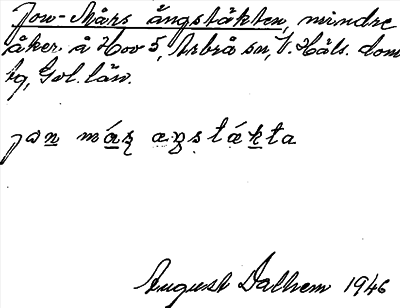 Jon-Mårs ängstäkten, mindre
åker å Hov 5, Arbrå sn, V. Häls. dom
sg, Gvl. län.
jon már ęŋstękta
August Dalhem 1946